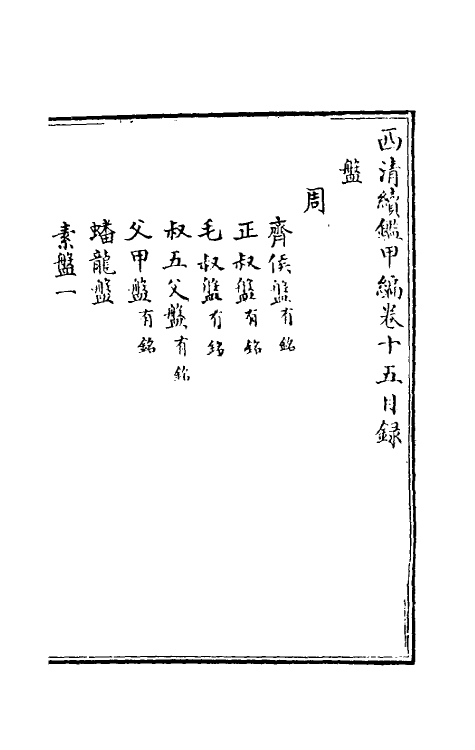 西清續鑑甲編卷十五目録
盤
周
齊侯盤有銘
正叔盤有銘
毛叔盤有銘
叔五父盤有銘
父甲盤有銘
蟠龍盤
素盤一